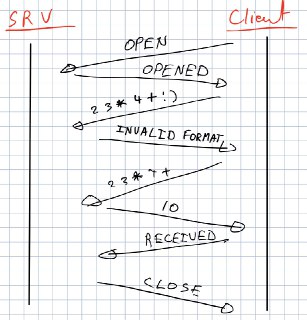 SRV Client
OPEN
OPENED
2 3 * 4 + !)
INVALID FORMAT
2 3 * 7 +
10
RECEIVED
CLOSE